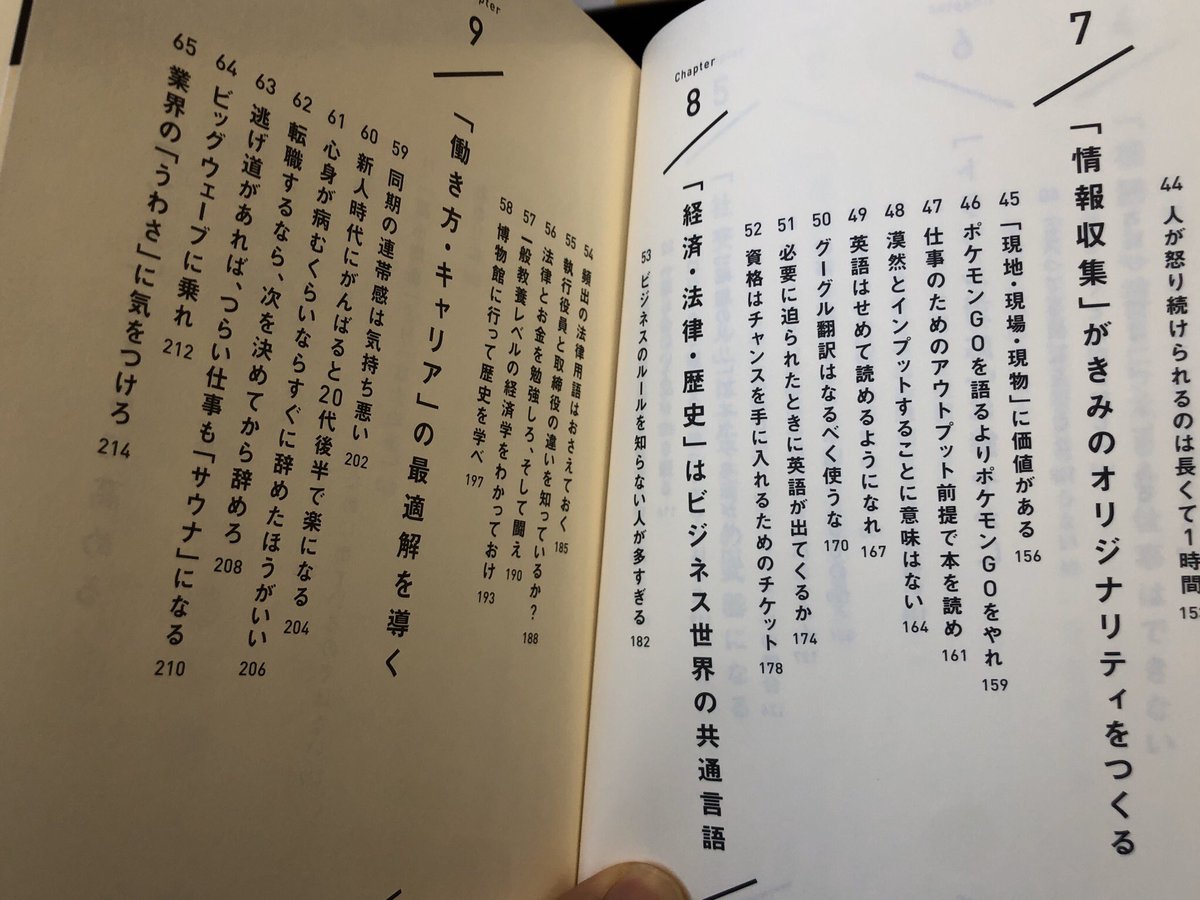 44 人が怒り続けられるのは長くて1時間 153
7
「情報収集」がきみのオリジナリティをつくる
45 「現地・現場・現物」に価値がある 156
46 ポケモンGOを語るよりポケモンGOをやれ 159
47 仕事のためのアウトプット前提で本を読め 161
48 漠然とインプットすることに意味はない 164
49 英語はせめて読めるようになれ 167
50 グーグル翻訳はなるべく使うな 170
51 必要に迫られたときに英語が出てくるか 174
52 資格はチャンスを手に入れるためのチケット 178
Chapter
8
「経済・法律・歴史」はビジネス世界の共通言語
53 ビジネスのルールを知らない人が多すぎる 182
54 頻出の法律用語はおさえておく 185
55 執行役員と取締役の違いを知っているか? 188
56 法律とお金を勉強しろ、そして闘え 190
57 一般教養レベルの経済学をわかっておけ 193
58 博物館に行って歴史を学べ 197
9
「働き方・キャリア」の最適解を導く
59 同期の連帯感は気持ち悪い 202
60 新人時代にがんばると20代後半で楽になる 204
61 心身が病むくらいならすぐに辞めたほうがいい 206
62 転職するなら、次を決めてから辞めろ 208
63 逃げ道があれば、つらい仕事も「サウナ」になる 210
64 ビッグウェーブに乗れ 212
65 業界の「うわさ」に気をつけろ 214